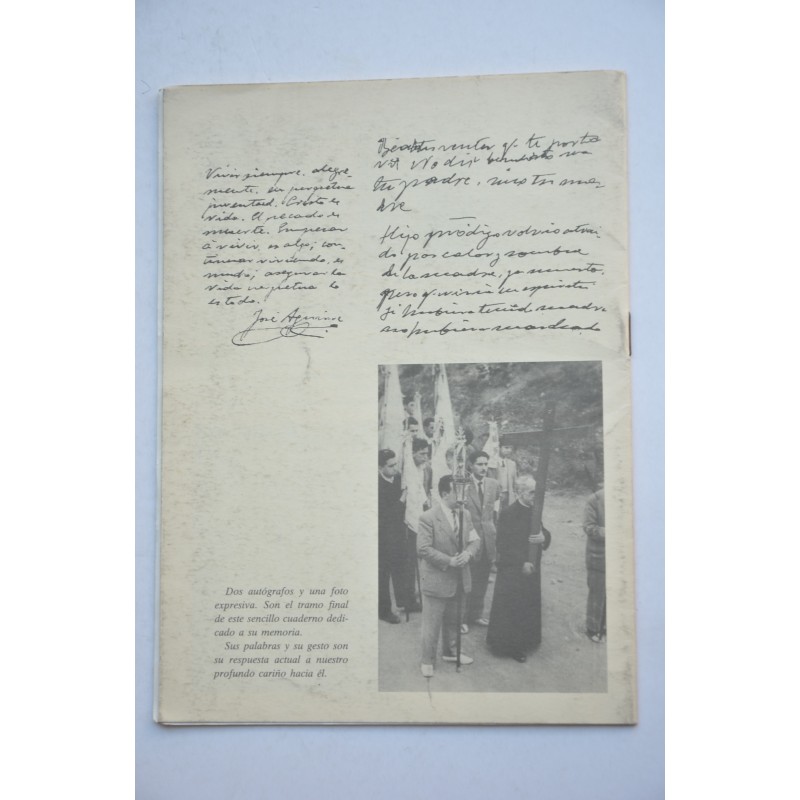 Vivir siempre, alegre-
mente, en perpetua
juventud. Cristo es
vida. El pecado es
muerte. Empezar
á vivir, es algo; con-
tinuar viviendo, es
mucho; asegurar la
vida perpetua lo
es todo.
José Aguirre
Beatus venter q. te porta
vit
tu padre, nuestra ma-
dre
Hijo pródigo volvió
do por calor y sombra
de la madre, ya muerta,
pero q. vivia en espiritu
Si hubiera tenido madre
no hubiera marchado
Dos autógrafos y una foto
expresiva. Son el tramo final
de este sencillo cuaderno dedi-
cado a su memoria.
Sus palabras y su gesto son
su respuesta actual a nuestro
profundo cariño hacia él.